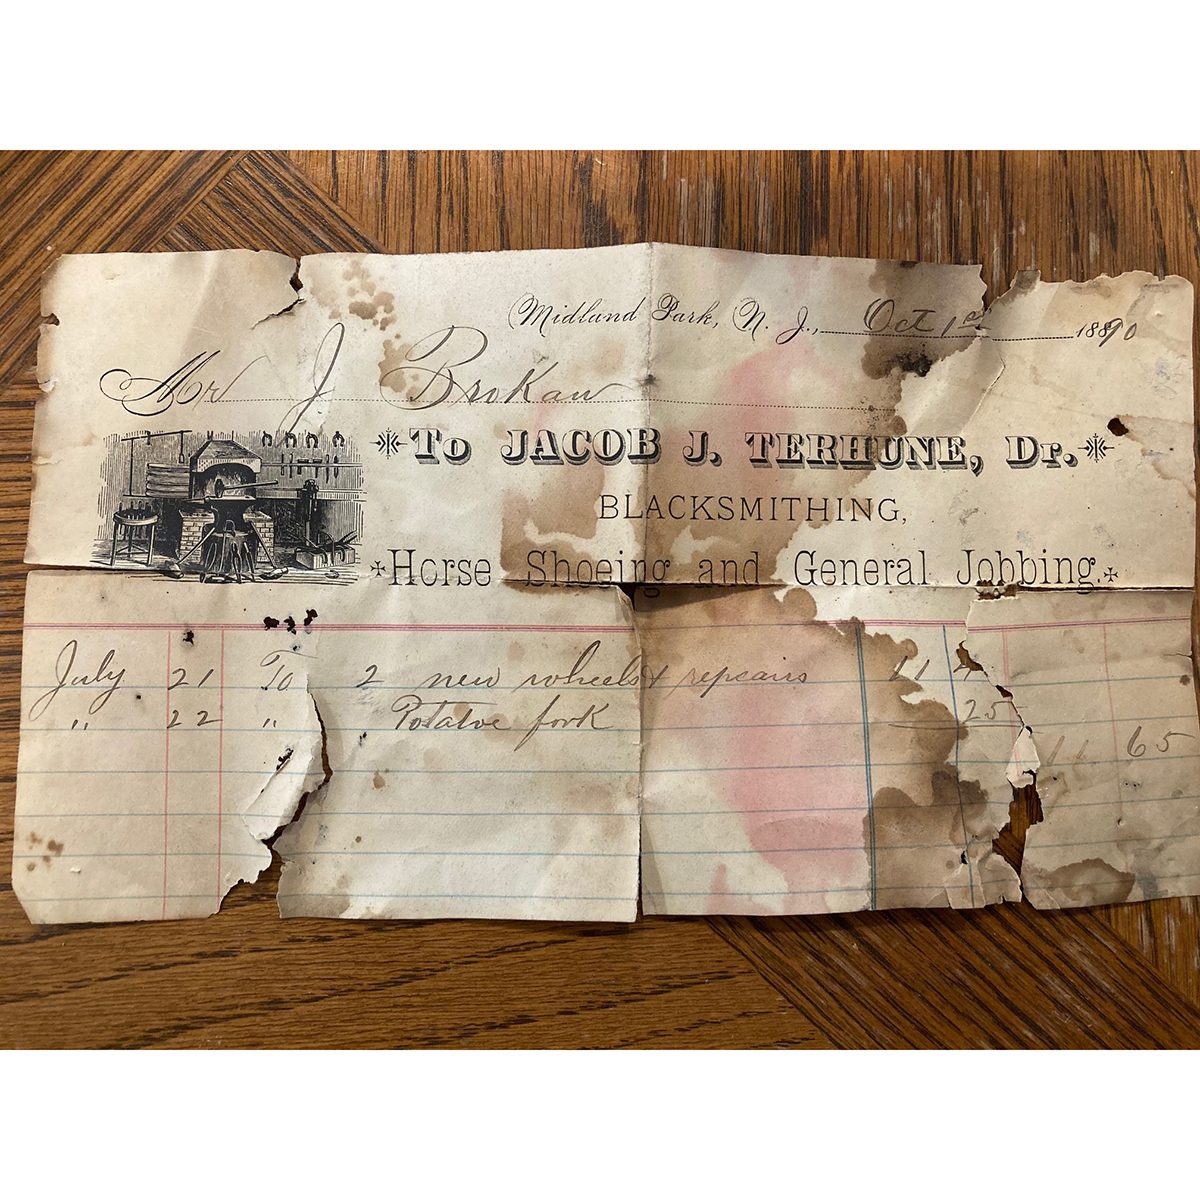 Midland Park, N. J., Oct 1st 1890
Mr J. Brokaw
To JACOB J. TERHUNE, Dr.
BLACKSMITHING,
Horse Shoeing and General Jobbing.
July 21 To 2 new wheels & repairs 11
" 22 " Potatoe fork 25
11 65